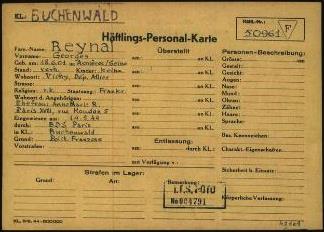 KL: BUCHENWALD
Häftl.-Nr.:
50961 F
Häftlings-Personal-Karte
Fam.-Name: Reynal
Vorname: Georges
Geb. am: 18.6.01 in Asnières/Seine
Stand: verh. Kinder: keine
Wohnort: Vichy, Dep. Allier
Strasse:
Religion: r.k. Staatsang.: Frankr.
Wohnort d. Angehörigen:
Ehefrau:
Paris XVII, rue
Eingewiesen am:
durch: BDS Paris
in KL.: Buchenwald
Grund: Polit. Franzose
Vorstrafen:
Überstellt
an KL.
an KL.
an KL.
an KL.
an KL.
an KL.
Entlassung:
am: durch KL.:
mit Verfügung v.:
Personen-Beschreibung:
Grösse:
Gestalt:
Gesicht:
Augen:
Nase:
Mund:
Ohren:
Zähne:
Haare:
Sprache:
Bes. Kennzeichen:
Charakt.-Eigenschaften:
Sicherheit b. Einsatz:
Körperliche Verfassung:
Strafen im Lager:
Grund: Art:
Bemerkung:
I.T.S. FOTO
No 004791